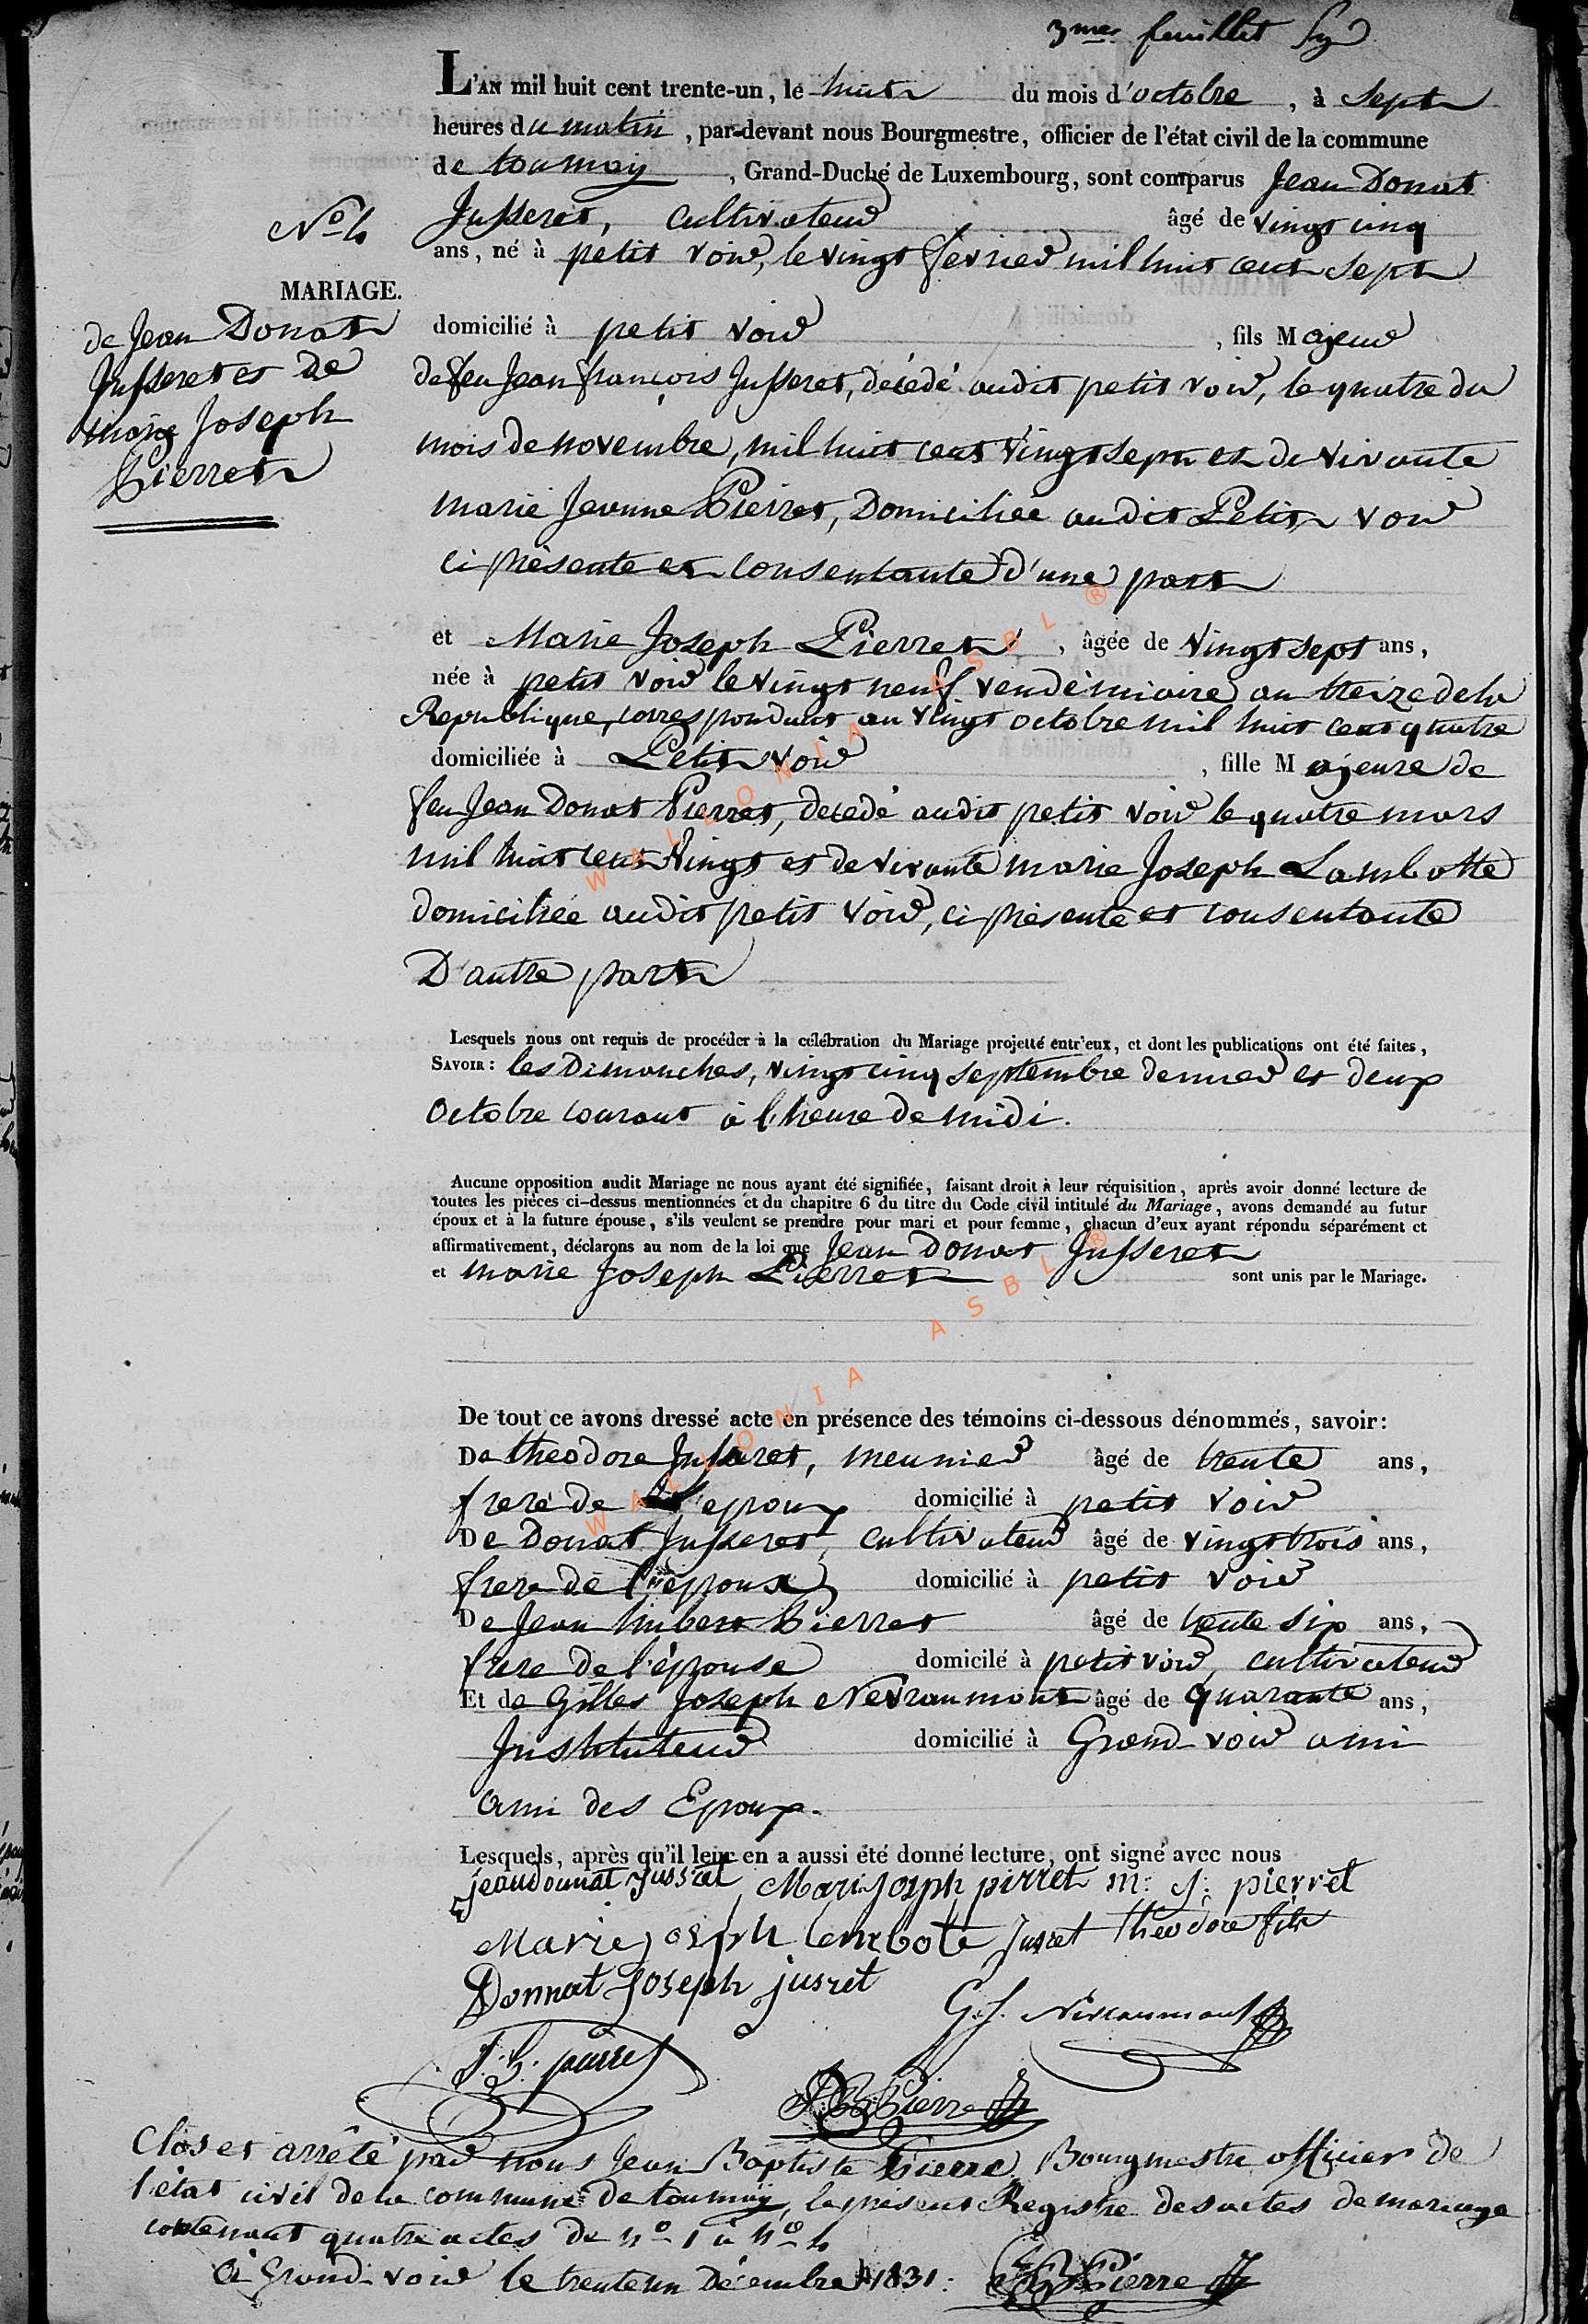 3me feuillet
L'AN mil huit cent trente-un, le huit du mois d'octobre, à sept
heures du matin, par-devant nous Bourgmestre, officier de l'état civil de la commune
de tournay, Grand-Duché de Luxembourg, sont comparus Jean Donat
Jusseret, cultivateur âgé de vingt cinq
ans, né à petit voir, le vingt fevrier mil huit cent sept
domicilié à petit voir, fils Majeur
de feu Jean françois Jusseret, décédé audit petit voir, le quatre du
mois de novembre, mil huit cent vingt sept et de vivante
marie Jeanne Pierret, Domiciliée audit Petit voir
ci présente et consentante d'une part
et Marie Joseph Pierret, âgée de vingt sept ans,
née à petit voir le vingt neuf vendémiaire an treize de la
Republique, correspondant au vingt octobre mil huit cent quatre
domiciliée à Petit voir, fille Majeure de
feu Jean Donat Pierret, décedé audit petit voir le quatre mars
mil huit cent vingt et de vivante marie Joseph Lambotte
domiciliée audit petit voir, ci présente et consentante
D'autre part
No 4
MARIAGE.
de Jean Donat
Jusseret et de
marie Joseph
Pierret
Lesquels nous ont requis de procéder à la célébration du Mariage projetté entr'eux, et dont les publications ont été faites,
SAVOIR: les Dimanches, vingt cinq septembre dernier et deux
octobre courant à l'heure de midi.
Aucune opposition audit Mariage ne nous ayant été signifiée, faisant droit à leur réquisition, après avoir donné lecture de
toutes les pièces ci-dessus mentionnées et du chapitre 6 du titre du Code civil intitulé du Mariage, avons demandé au futur
époux et à la future épouse, s'ils veulent se prendre pour mari et pour femme, chacun d'eux ayant répondu séparément et
affirmativement, déclarons au nom de la loi que Jean Donat Jusseret
et marie Joseph Pierret sont unis par le Mariage.
De tout ce avons dressé acte en présence des témoins ci-dessous dénommés, savoir:
De theodore Jusseret, meunier âgé de trente ans,
frere de l'epoux domicilié à petit voir
De Donat Jusseret, cultivateur âgé de vingt trois ans,
frere de l'époux domicilié à petit voir
De Jean hubert Pierret âgé de trente six ans,
frere de l'épouse domicilé à petit voir, cultivateur
Et de Gilles Joseph Nevraumont âgé de quarante ans,
Instituteur domicilié à Grand voir ami
ami des Epoux.
Lesquels, après qu'il leur en a aussi été donné lecture, ont signé avec nous
jeandounat jussret Mari Josph pirret m: j: pierrét
Marie josph lambote Jusret théodore fils
Donnat Joseph jusrét
G. J. Nevraumont
J. h. pierret
JB Pierre
Clos et arrêté par nous Jean Baptiste Pierre Bourgmestre officier de
l'état civil de la commune de tournay, le présent Registre des actes de mariage
contenant quatre actes du no 1 à no 4
à Grand-voir le trente un Décembre 1831:
JB Pierre
WALLONIA ASBL ®
WALLONIA ASBL ®